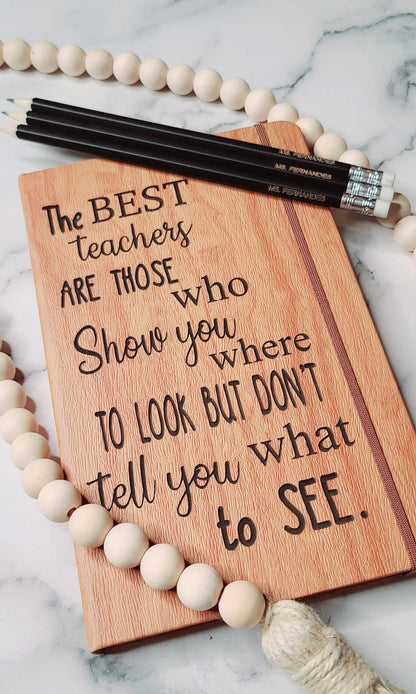 MS. FERNANDES
MS. FERNANDES
The BEST
teachers
ARE THOSE
who
Show you
where
TO LOOK BUT DON'T
tell you what
to SEE.